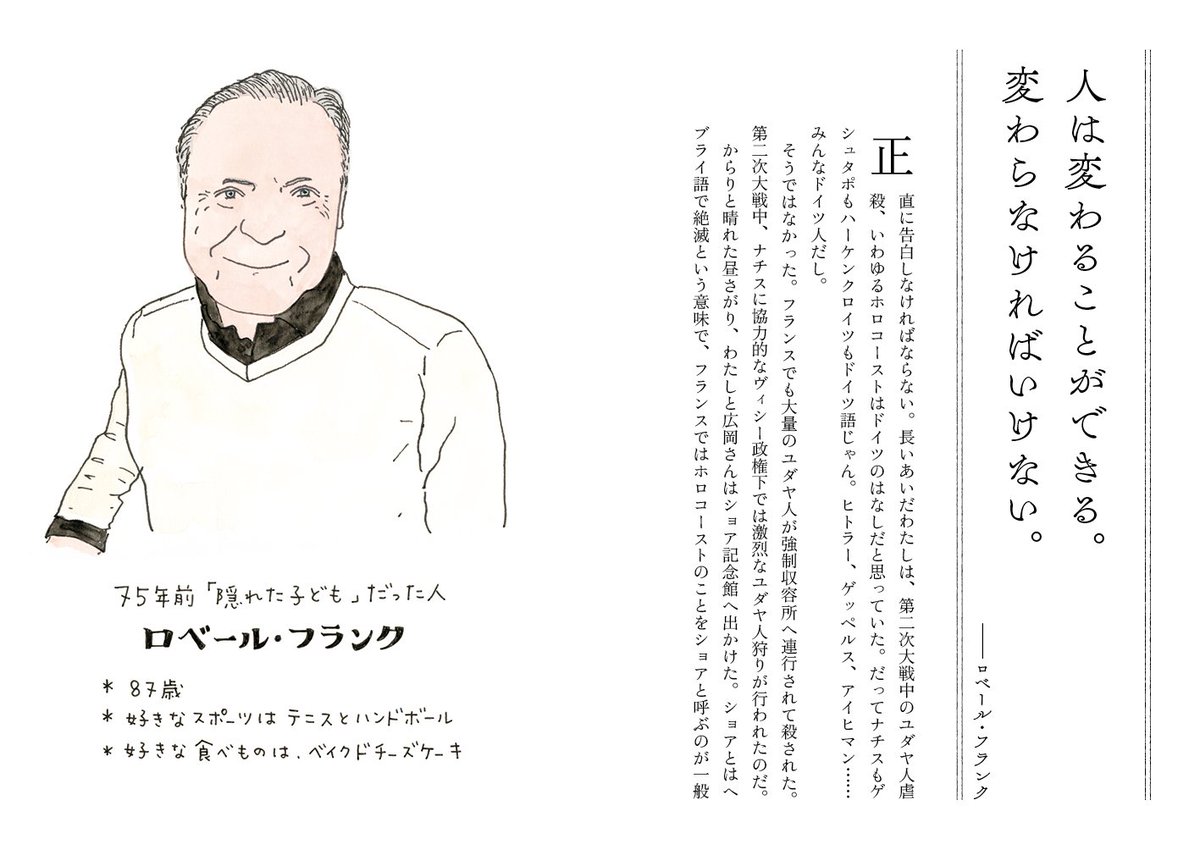 人は変わることができる。
変わらなければいけない。
――ロベール・フランク
正直に告白しなければならない。長いあいだわたしは、第二次大戦中のユダヤ人虐
殺、いわゆるホロコーストはドイツのはなしだと思っていた。だってナチスもゲ
シュタポもハーケンクロイツもドイツ語じゃん。ヒトラー、ゲッペルス、アイヒマン……
みんなドイツ人だし。
そうではなかった。フランスでも大量のユダヤ人が強制収容所へ連行されて殺された。
第二次大戦中、ナチスに協力的なヴィシー政権下では激烈なユダヤ人狩りが行われたのだ。
からりと晴れた昼さがり、わたしと広岡さんはショア記念館へ出かけた。ショアとはヘ
ブライ語で絶滅という意味で、フランスではホロコーストのことをショアと呼ぶのが一般
75年前「隠れた子ども」だった人
ロベール・フランク
* 87歳
* 好きなスポーツは テニスとハンドボール
* 好きな食べものは、ベイクドチーズケーキ